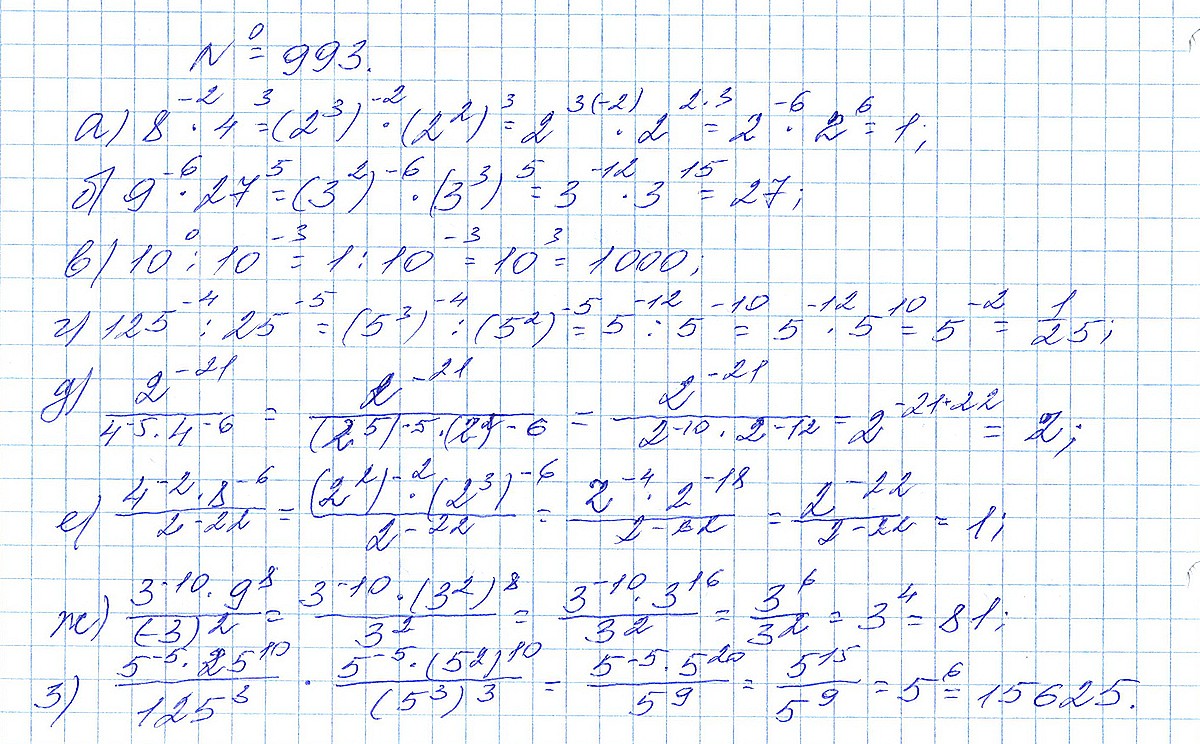 № 993.
а) 8⁻² · 4³ = (2³)⁻² · (2²)³ = 2³⁽⁻²⁾ · 2²·³ = 2⁻⁶ · 2⁶ = 1;
б) 9⁻⁶ · 27⁵ = (3²)⁻⁶ · (3³)⁵ = 3⁻¹² · 3¹⁵ = 27;
в) 10⁰ : 10⁻³ = 1 : 10⁻³ = 10³ = 1000;
г) 125⁻⁴ : 25⁻⁵ = (5³)⁻⁴ : (5²)⁻⁵ = 5⁻¹² : 5⁻¹⁰ = 5⁻¹² · 5¹⁰ = 5⁻² = 1/25;
д) 2⁻²¹/(4⁻⁵ · 4⁻⁶) = 2⁻²¹/((2⁵)⁻⁵ · (2²)⁻⁶) = 2⁻²¹/(2⁻¹⁰ · 2⁻¹²) = 2⁻²¹⁺²² = 2;
е) (4⁻² · 8⁻⁶)/2⁻²² = ((2²)⁻² · (2³)⁻⁶)/2⁻²² = (2⁻⁴ · 2⁻¹⁸)/2⁻²² = 2⁻²²/2⁻²² = 1;
ж) (3⁻¹⁰ · 9⁸)/(-3)² = (3⁻¹⁰ · (3²)⁸)/3² = (3⁻¹⁰ · 3¹⁶)/3² = 3⁶/3² = 3⁴ = 81;
з) (5⁻⁵ · 25¹⁰)/125³ · (5⁻⁵ · (5²)¹⁰)/(5³)³ = (5⁻⁵ · 5²⁰)/5⁹ = 5¹⁵/5⁹ = 5⁶ = 15625.